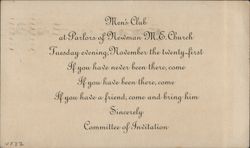 Men's Club
at Parlors of Newman M.E. Church
Tuesday evening, November the twenty-first
If you have never been there, come
If you have been there, come
If you have a friend, come and bring him
Sincerely
Committee of Invitation